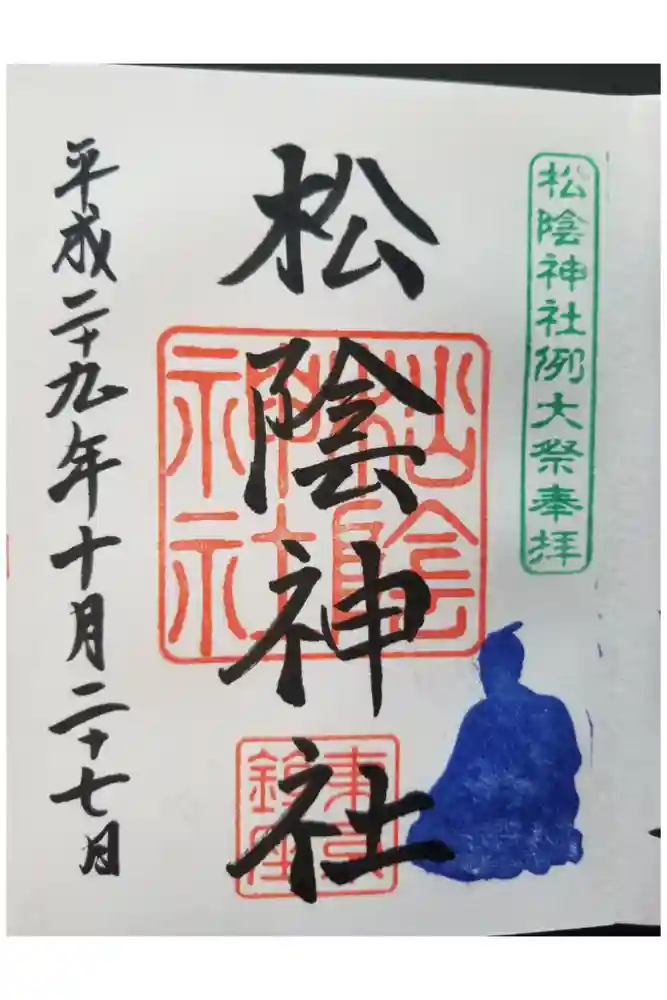 松陰神社例大祭奉拝
松陰神社
松陰
神社
東京
鎮座
平成二十九年十月二十七日